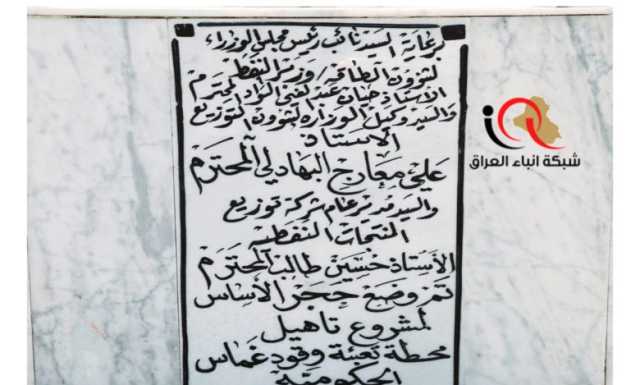 برعاية السيد نائب رئيس مجلس الوزراء
لشؤون الطاقة / وزير النفط
الأستاذ حيان عبد الغني الزاد المحترم
والسيد وكيل الوزارة لشؤون التوزيع
الأستاذ
علي معارج البهادلي المحترم
والسيد مدير عام شركة توزيع
المنتجات النفطية
الأستاذ حسين طالب المحترم
تم وضع حجر الأساس
لمشروع تأهيل
محطة تعبئة وقود غماس
الحكومية
شبكة انباء العراق